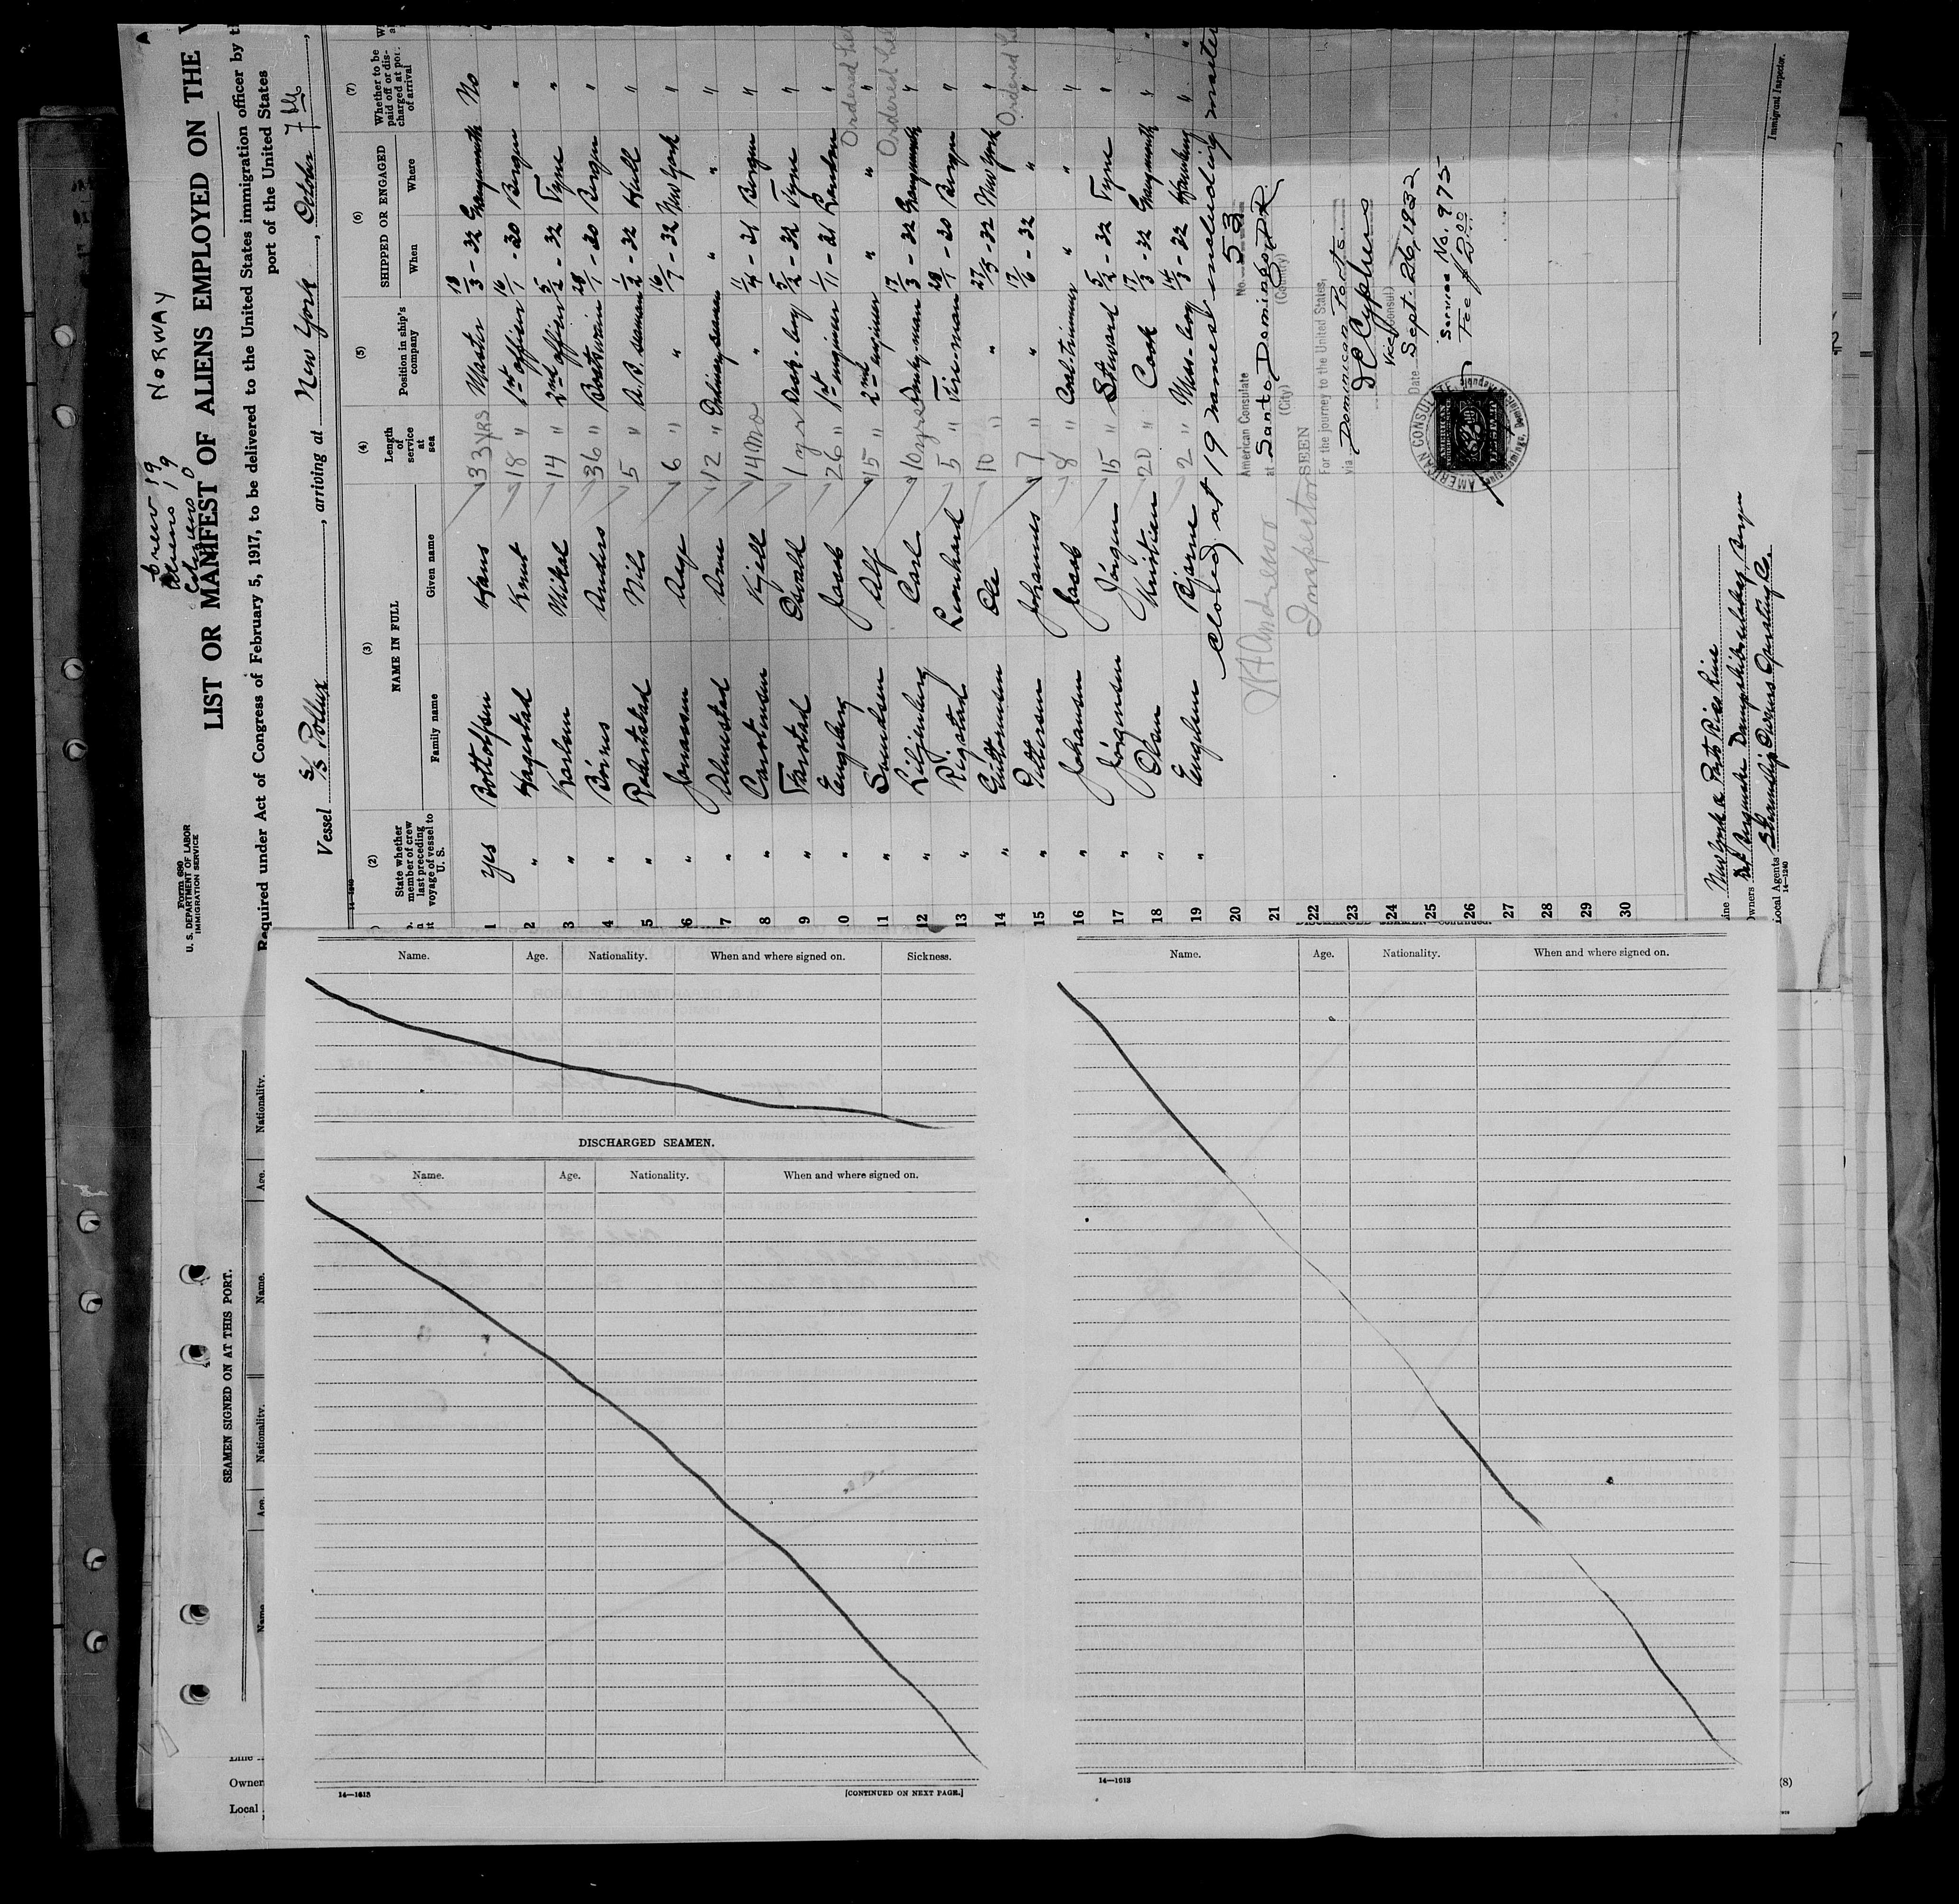 NORWAY
Crew 19
Aliens 19
Citizens 0
Form 680
U. S. DEPARTMENT OF LABOR
IMMIGRATION SERVICE
LIST OR MANIFEST OF ALIENS EMPLOYED ON THE
Required under Act of Congress of February 5, 1917, to be delivered to the United States immigration officer by
port of the United States
Vessel S/S Pollux, arriving at New York, October 7th,
14—1240
(2) (3) (4) (5) (6) (7)
State whether member of crew last preceding voyage of vessel to U. S.
NAME IN FULL
Family name Given name
Length of service at sea
Position in ship's company
SHIPPED OR ENGAGED
When Where
Whether to be paid off or discharged at port of arrival
1 yes Bottolfsen Hans 33 yrs Master 18/3 - 32 No
2 " Hagestad Knut 18 " 1st officer 16/1 - 30 Bergen "
3 " Karlsen Mikal 14 " 2nd officer 5/2 - 32 Tyne "
4 " Anders 36 " Boatswain 28/1 - 30 Bergen "
5 " Nils 5 " A.B. seaman 1/2 - 32 Hull "
6 " Jonassen 6 " " 16/7 - 32 New York "
7 " Almestad Arne 12 " Ordinary seaman " " "
8 " Carstensen Kjell 14 mo " 11/4 - 31 Bergen "
9 " Osvald 1 yr Deck-boy 5/2 - 32 Tyne "
10 " Engeberg Jacob 26 " 1st engineer 1/11 - 31 "
11 " Alf 15 " 2nd engineer " " "
12 " Liljenberg Carl 10 yrs Donkey-man 17/3 - 32 "
13 " Rigstad Leonhard 5 " Fire-man 28/1 - 30 Bergen "
14 " Guttormsen Ole 10 " " 27/5 - 32 New York "
15 " Pettersen Johannes 7 " " 17/6 - 32 " "
16 " Johansen Jacob 8 " Coal-trimmer " " "
17 " Jörgensen Jörgen 15 " Steward 5/2 - 32 Tyne "
18 " Olsen Kristian 20 " Cook 17/3 - 32 "
19 " Engelsen Bjarne 2 " Mess-boy 14/3 - 32 Hamburg "
Closed at 19 names including master
20
21
22
23
24
25
26
27
28
29
30
Ordered
Ordered
Ordered
Inspector
American Consulate No. 53
at Santo Domingo, D.R.
(City) (Country)
SEEN
For the journey to the United States,
via Dominican Ports.
Vice Consul
Date Sept. 26, 1932
Service No. 975
AMERICAN CONSULATE
New York & Porto Rico Line
Det Bergenske Dampskibsselskap Bergen
Local Agents Steamship Owners Operating Co.
14—1240
Immigrant Inspector.
Name. Age. Nationality. When and where signed on. Sickness.
DISCHARGED SEAMEN.
Name. Age. Nationality. When and where signed on.
14—1613
[CONTINUED ON NEXT PAGE.]
Name. Age. Nationality. When and where signed on.
14—1613
SEAMEN SIGNED ON AT THIS PORT.
Name. Age. Nationality. Name. Age. Nationality.
Owner
Local
(8)